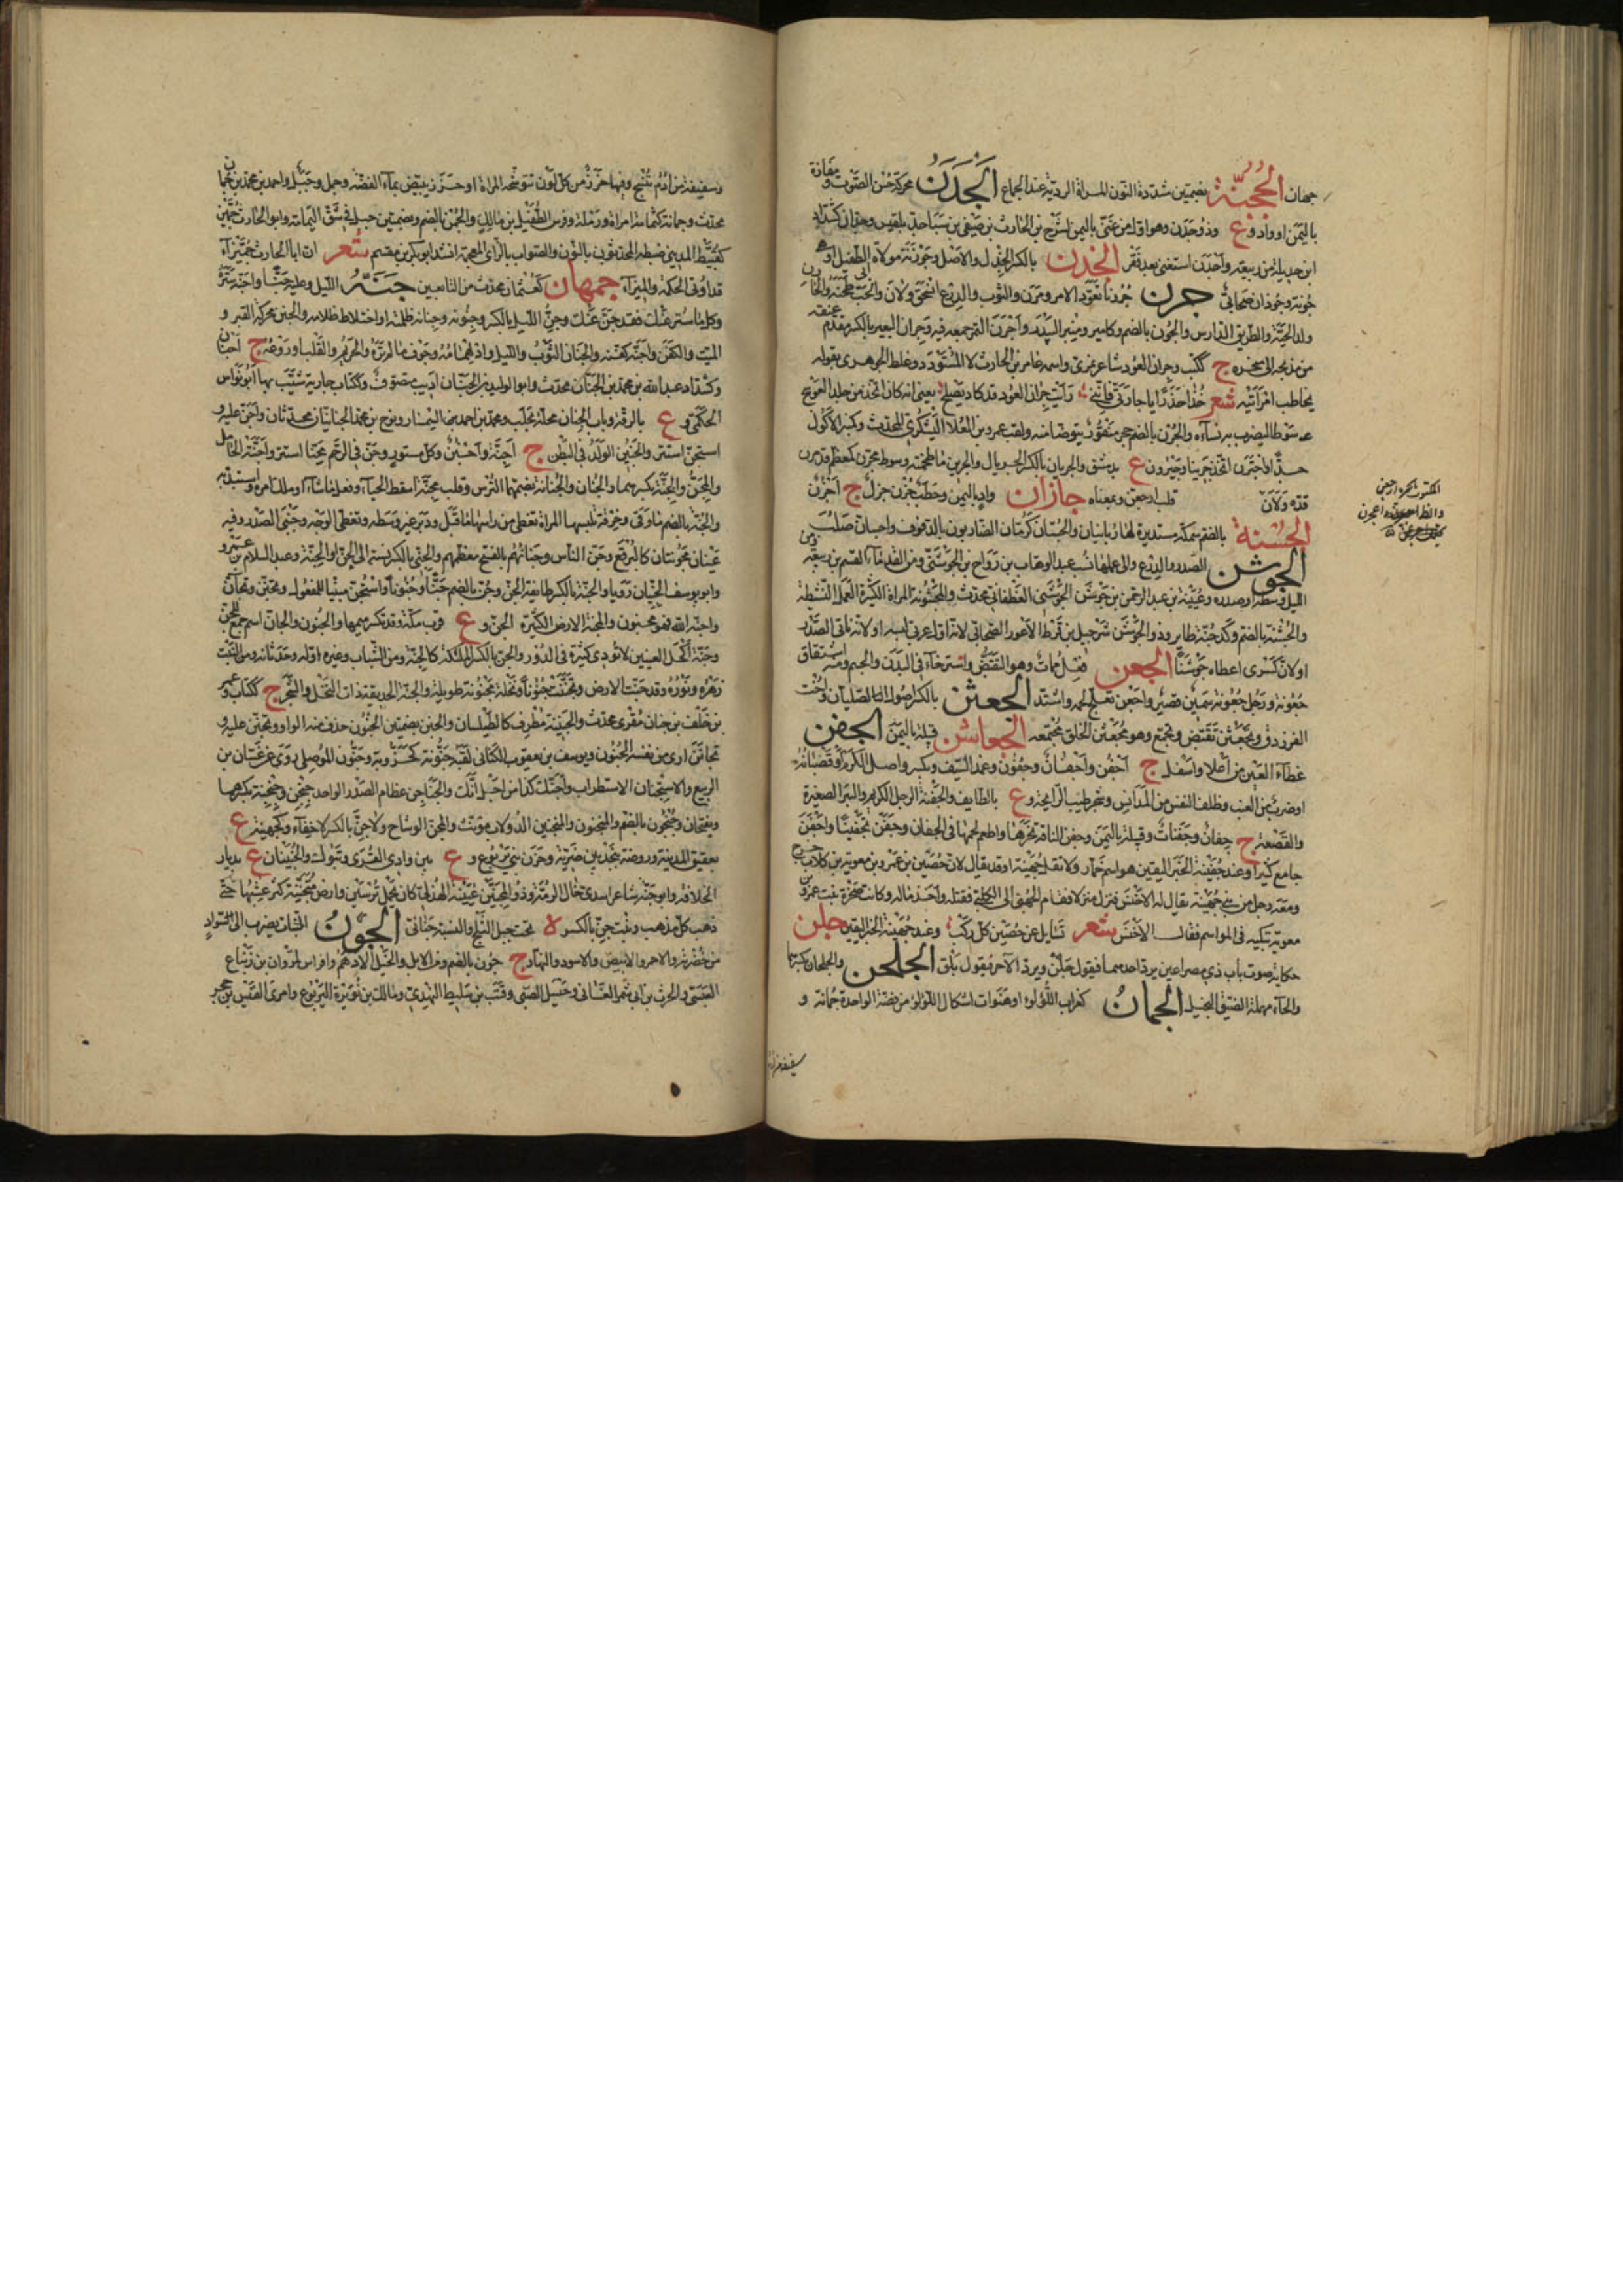 جهان الجُحُنَّةُ بضمتين مشددة النون المراة الرديّة عند الجماع الجَدَنُ محركة حُسْن الصَّوْت ومفازة
باليمن او واد و ع وذو جَدَن وهو اول من غنّى باليمن ابن الحارث بن صيفي بن سبأ جد بلقيس
ابن جديلة من ربيعة واجدن استغنى بعد فقر الجِذْنُ بالكسر الجِذْل والاصل وجَوْذَنَة مولاة ابى الطفيل او
جُونة وجوذان صحابى جرن جُرُونا تعوّد الامر ومرن والثوب والدرع انسحق ولان والحب طحنه والجارن
ولد الحيّة والطريق الدارس والجُرْن بالضم وكامير ومنبر البيدر واجرن التمر جمعه فيه وجِران البعير بالكسر مقدّم عنقه
من مذبحه الى منحره ج ككتب وجران العود شاعر نمرى واسمه عامر بن الحارث لا المستورد وغلط الجوهرى بقوله
يخاطب امراتيه شعر خذا حذرا يا جارتى فاننى رايت جران العود قد كاد يصلح يعنى انه كان اتخذ من جلد العود
سوطا ليضرب به نساءه والجُرْن بالضم حجر منقور يتوضا منه ولقب عمرو بن العلاء اليشكرى المحدث وكمنبر الاكول
جدّا واجترن اتخذ جرينا وجَيْرُون ع بدمشق والجريان بالكسر الجريال والجرين ما طحنته وسوط مجرّن كمعظم قد مرن
قدّه ولان قلب ارجعن وبمعناه جازان واد باليمن وحطب جَزْن جزل ج اجزُن
الجُشْنَةُ بالضم سمكة مستديرة لها
الجوشن الصدر والدرع والى عملها نسب عبد الوهاب بن رواح بن الجوشنى ومن القدماء القسم بن ربيعة ومن
الليل وسطه او صدره وعيينة بن عبد الرحمن بن جوشن الجوشنى الغطفانى محدث والمجشونة المراة الكثيرة العمل النشيطة
والجُشنة بالضم وكدجنّة طاير وذو الجوشن شرحبيل بن قرط الاعور الصحابى لانه اول عربى لبسه او لانه ناتى الصدر
او لان كسرى اعطاه جوشنا الجعن فعل ممات وهو التقبض واسترخاء فى البدن والجسم ومنه اشتقاق
جعونة ورجل جعونة سمين قصير واجعن تعلج لحمه واشتد الجعثن بالكسر اصول الصليان واخت
الفرزدق وتجعثن تقبض وتجمع وهو مجعثن الخلق مجتمعه الجعاشن قبيلة باليمن الجفن
غطاء العين من اعلا واسفل ج اجفن واجفان وجفون وغمد السيف ويكسر واصل الكرم او قضبانه
او ضرب من العنب وظلف النفس من المدانس وشجر طيب الرايحة و ع بالطايف والجفنة الرجل الكريم والبئر الصغيرة
والقصعة ج جفان وجفنات وقبيلة باليمن وجفن الناقة نحرها واطعم لحمها فى الجفان وجفن تجفينا واجفن
جامع كثيرا وعند جفينة الخبر اليقين هو اسم خمار ولا تقل جهينة او قد يقال لان حصين بن عمرو بن معوية بن كلاب خرج
ومعه رجل من جهينة يقال له الاخنس فنزل منزلا فقام الجهنى الى الكلابى فقتله واخذ ماله وكانت صخرة بنت عمرو بن
معوية تبكيه فى المواسم فقال الاخنس شعر تسايل عن حصين كل ركب وعند جهينة الخبر اليقين جلن
حكاية صوت باب ذى مصراعين يرد احدهما فيقول جلن ويرد الآخر فيقول بلق الجلحن والجلحان بكسرهما
والحاء مهملة الضيق البخيل الجمان كغراب اللؤلؤ او هنوات اشكال اللؤلؤ من فضة الواحدة جمانة و
سفيفة من ادم
وسفيفة من ادم تنسج وفيها خرز من كل لون تتوشحه المراة او خرز يبيض بماء الفضة وجمل وجبل واحمد بن محمد بن جمان
محدث وجمانة كثمامة امراة ورملة وفرس الطفيل بن مالك والجمن بالضم وبضمتين جبل فى شق اليمامة وابو الحارث جمين
كقبيط المدينى ضبطه المحدثون بالنون والصواب بالزاى المعجمة انشد ابو بكر بن مقسم شعر ان ابا الحارث جميزا
قد اوتى الحكمة والميزا جمهان كعثمان محدث من التابعين جَنَّهُ الليل وعليه جنا واجنه ستره
وكل ما ستر عنك فقد جن عنك وجن الليل بالكسر وجنونه وجنانه ظلمته او اختلاط ظلامه والجنن محركة القبر و
الميت والكفن واجنه كفنه والجنان الثوب والليل وادلهمامه وجوف ما لم تر والحريم والقلب او روعه ج اجنان
وكشداد عبد الله بن محمد بن الجنان محدث وابو الوليد بن الجنان اديب متصوف وككتاب جارية شبب بها ابو نواس
الحكمى و ع بالرقة وباب الجنان محلة بحلب ومحمد بن احمد بن السمسار ونوح بن محمد الجنانيان محدثان واجن عليه و
استجن استتر والجنين الولد فى البطن ج اجنة واجنن وكل مستور وجن فى الرحم يجن جنا استتر واجنته الحامل
والمجن والمجنة بكسرهما والجنان والجنانة بضمهما الترس وقلب مجنه اسقط الحياء وفعل ما شاء او ملك امره واستبد به
والجنة بالضم ما وقى وخرقة تلبسها المراة تغطى من راسها ما قبل ودبر غير وسطه وتغطى الوجه وجنبى الصدر وفيه
عينان مجوبتان كالبرقع وجن الناس وجنانهم بالفتح معظمهم والجنى بالكسر نسبة الى الجن او الجنة وعبد السلام بن عمرو
وابو يوسف الجنيان رويا والجنة بالكسر طايفة الجن وجن بالضم جنا وجنونا واستجن مبنيا للمفعول وتجنن وتجان
واجنه الله فهو مجنون والمجنة الارض الكثيرة الجن و ع قرب مكة وقد تكسر ميمها والجنون والجان اسم جمع للجن
وحية اكحل العينين لا تؤذى كثيرة فى الدور والجن بالكسر الملائكة كالجنة ومن الشباب وغيره اوله وحدثانه ومن النبت
زهره ونوره وقد جنت الارض وتجننت جنونا ونخلة مجنونة طويلة والجنة الحديقة ذات النخل والشجر ج ككتاب وعمرو
بن خلف بن جنان مقرى محدث والجنينة مطرف كالطيلسان والجنن بضمتين الجنون حذف منه الواو وتجنن عليه و
تجانن ارى من نفسه الجنون ويوسف بن يعقوب الكنانى لقبه جنونة كخروبة وجنون الموصلى روى عن غسان بن
الربيع والاستجنان الاستطراب واجنك كذا من اجل انك والجناجن عظام الصدر الواحد جنجن وجنجنة بكسرهما
ويفتحان وجنجون بالضم والمنجنون والمنجنين الدولاب مؤنث والمجن الوشاح ولا جن بالكسر لا خفاء وكجهينة ع
بعقيق المدينة وروضة بنجد بين ضرية وحزن بنى يربوع و ع بين وادى القرى وتبوك والجنينات ع بديار
الخلافة وابو جنة شاعر اسدى خال ذى الرمة وذو المجنين عتيبة الهذلى كان يحمل ترسين وارض متجننة كثر عشبها حتى
ذهب كل مذهب وبنت جن بالكسر لا تحت جبل الثلج والنسبة جنانى الجَوْنُ النبات يضرب الى السواد
من خضرته والاحمر والابيض والاسود والنهار ج جون بالضم ومن الابل والخيل الادهم وافراس لمروان بن زنباع
العبسى والحرث بن ابى شمر الغسانى وحسيل الضبى وقتب بن سليط النهدى ومالك بن نويرة اليربوعى وامرئ القيس بن حجر